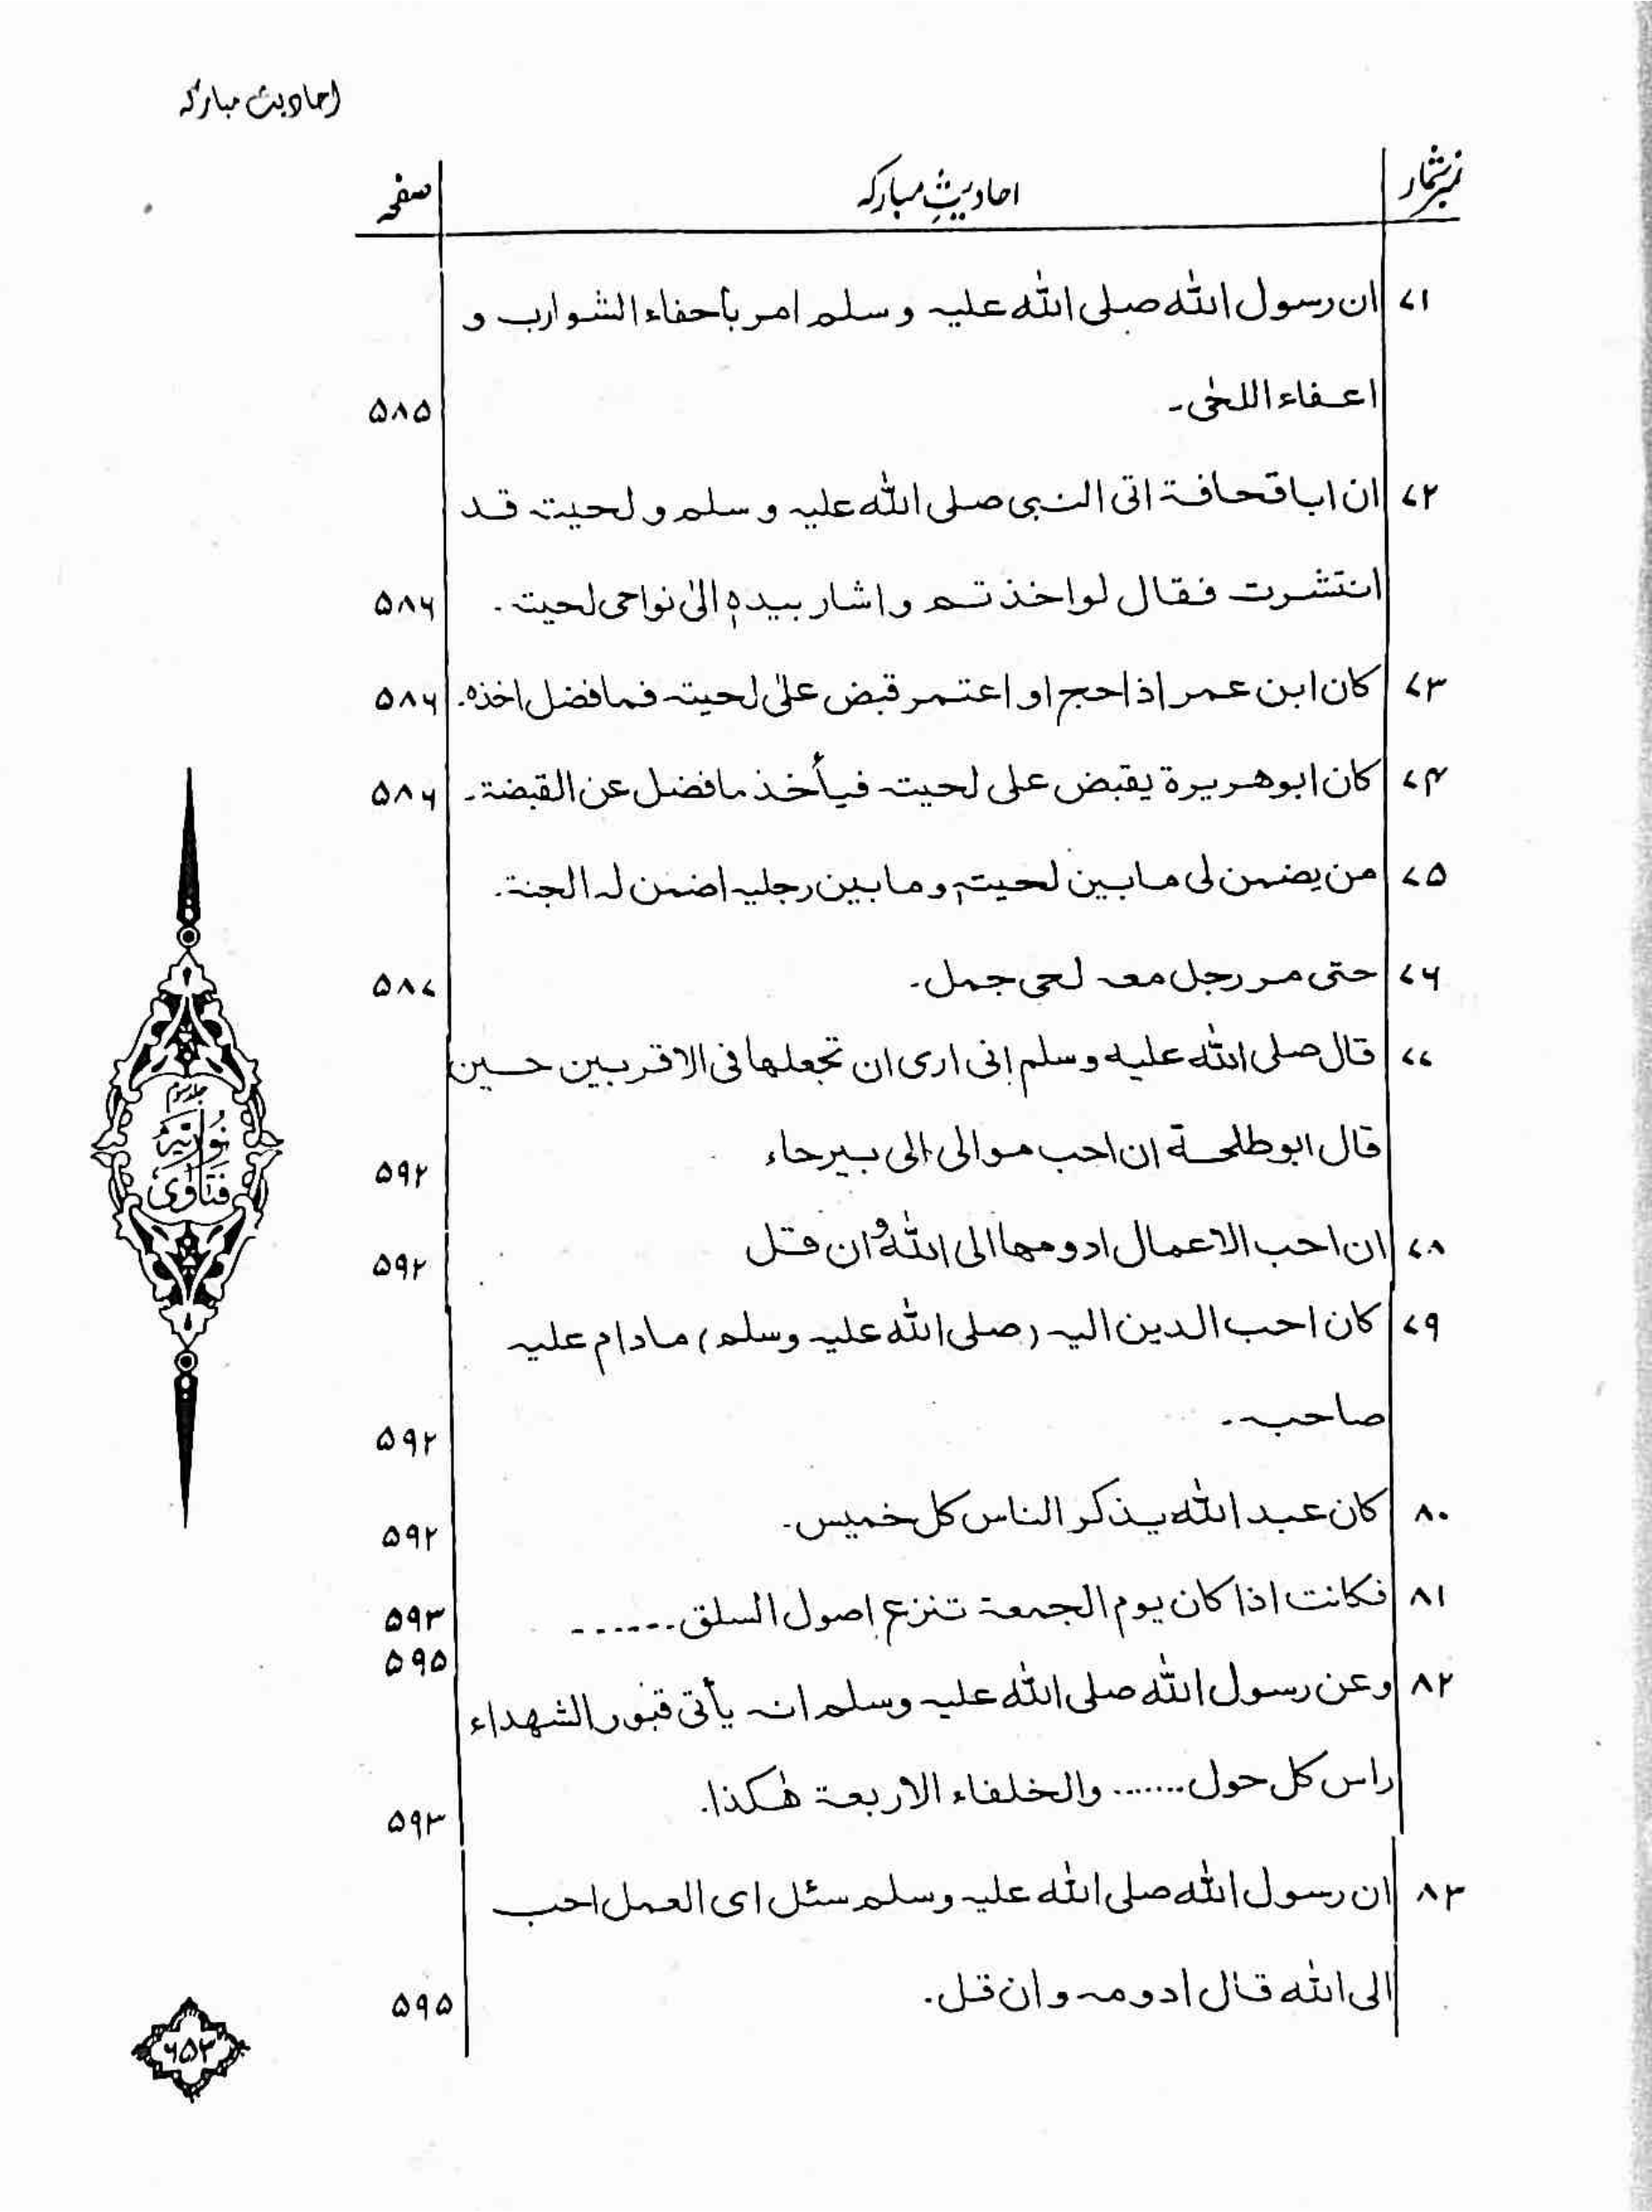 احادیث مبارکہ
نمبر شمار احادیثِ مبارکہ صفحہ
۷۱ ان رسول اللہ صلی اللہ علیہ وسلم امر باحفاء الشوارب و
اعفاء اللحٰی۔ ۵۸۵
۷۲ ان اباقحافة اتی النبی صلی اللہ علیہ وسلم ولحیتہ قد
انتشرت فقال لواخذتم واشار بیدہٖ الیٰ نواحی لحیتہ۔ ۵۸۶
۷۳ کان ابن عمر اذا حج او اعتمر قبض علیٰ لحیتہ فمافضل اخذہ۔ ۵۸۶
۷۴ کان ابوھریرة یقبض علی لحیتہ فیأخذ مافضل عن القبضة۔ ۵۸۶
۷۵ من یضمن لی مابین لحیتہٖ ومابین رجلیہ اضمن لہ الجنة۔
۷۶ حتی مر رجل معہ لحی جمل۔ ۵۸۷
۷۷ قال صلی اللہ علیہ وسلم إنی اری ان تجعلھا فی الاقربین حسین
قال ابوطلحة ان احب موالی الی بیرحاء ۵۹۲
۷۸ ان احب الاعمال ادومھا الی اللہ وان قل ۵۹۲
۷۹ کان احب الدین الیہ (صلی اللہ علیہ وسلم) مادام علیہ
صاحبہ۔ ۵۹۲
۸۰ کان عبد اللہ یذکر الناس کل خمیس۔ ۵۹۲
۸۱ فکانت اذا کان یوم الجمعة تنزع اصول السلق ------- ۵۹۳
۵۹۵
۸۲ وعن رسول اللہ صلی اللہ علیہ وسلم انہ یأتی قبور الشھداء
راس کل حول ....... والخلفاء الاربعة ھٰکذا۔ ۵۹۳
۸۳ ان رسول اللہ صلی اللہ علیہ وسلم سئل ای العمل احب
الی اللہ قال ادومہ وان قل۔ ۵۹۵
جلد سوم
نوریہ
فتاویٰ
۶۵۳